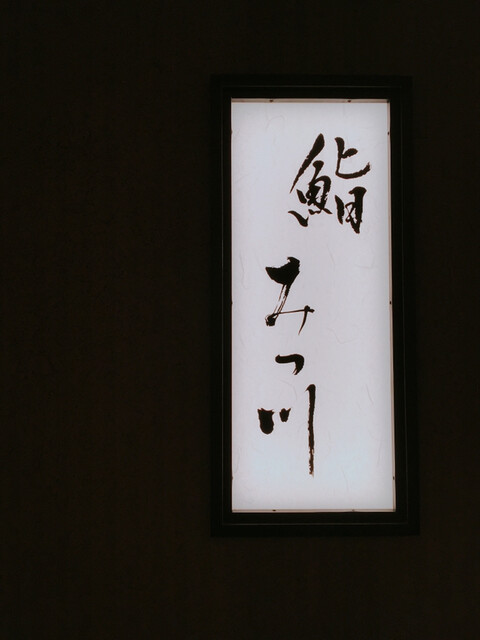 鮨
みつ川